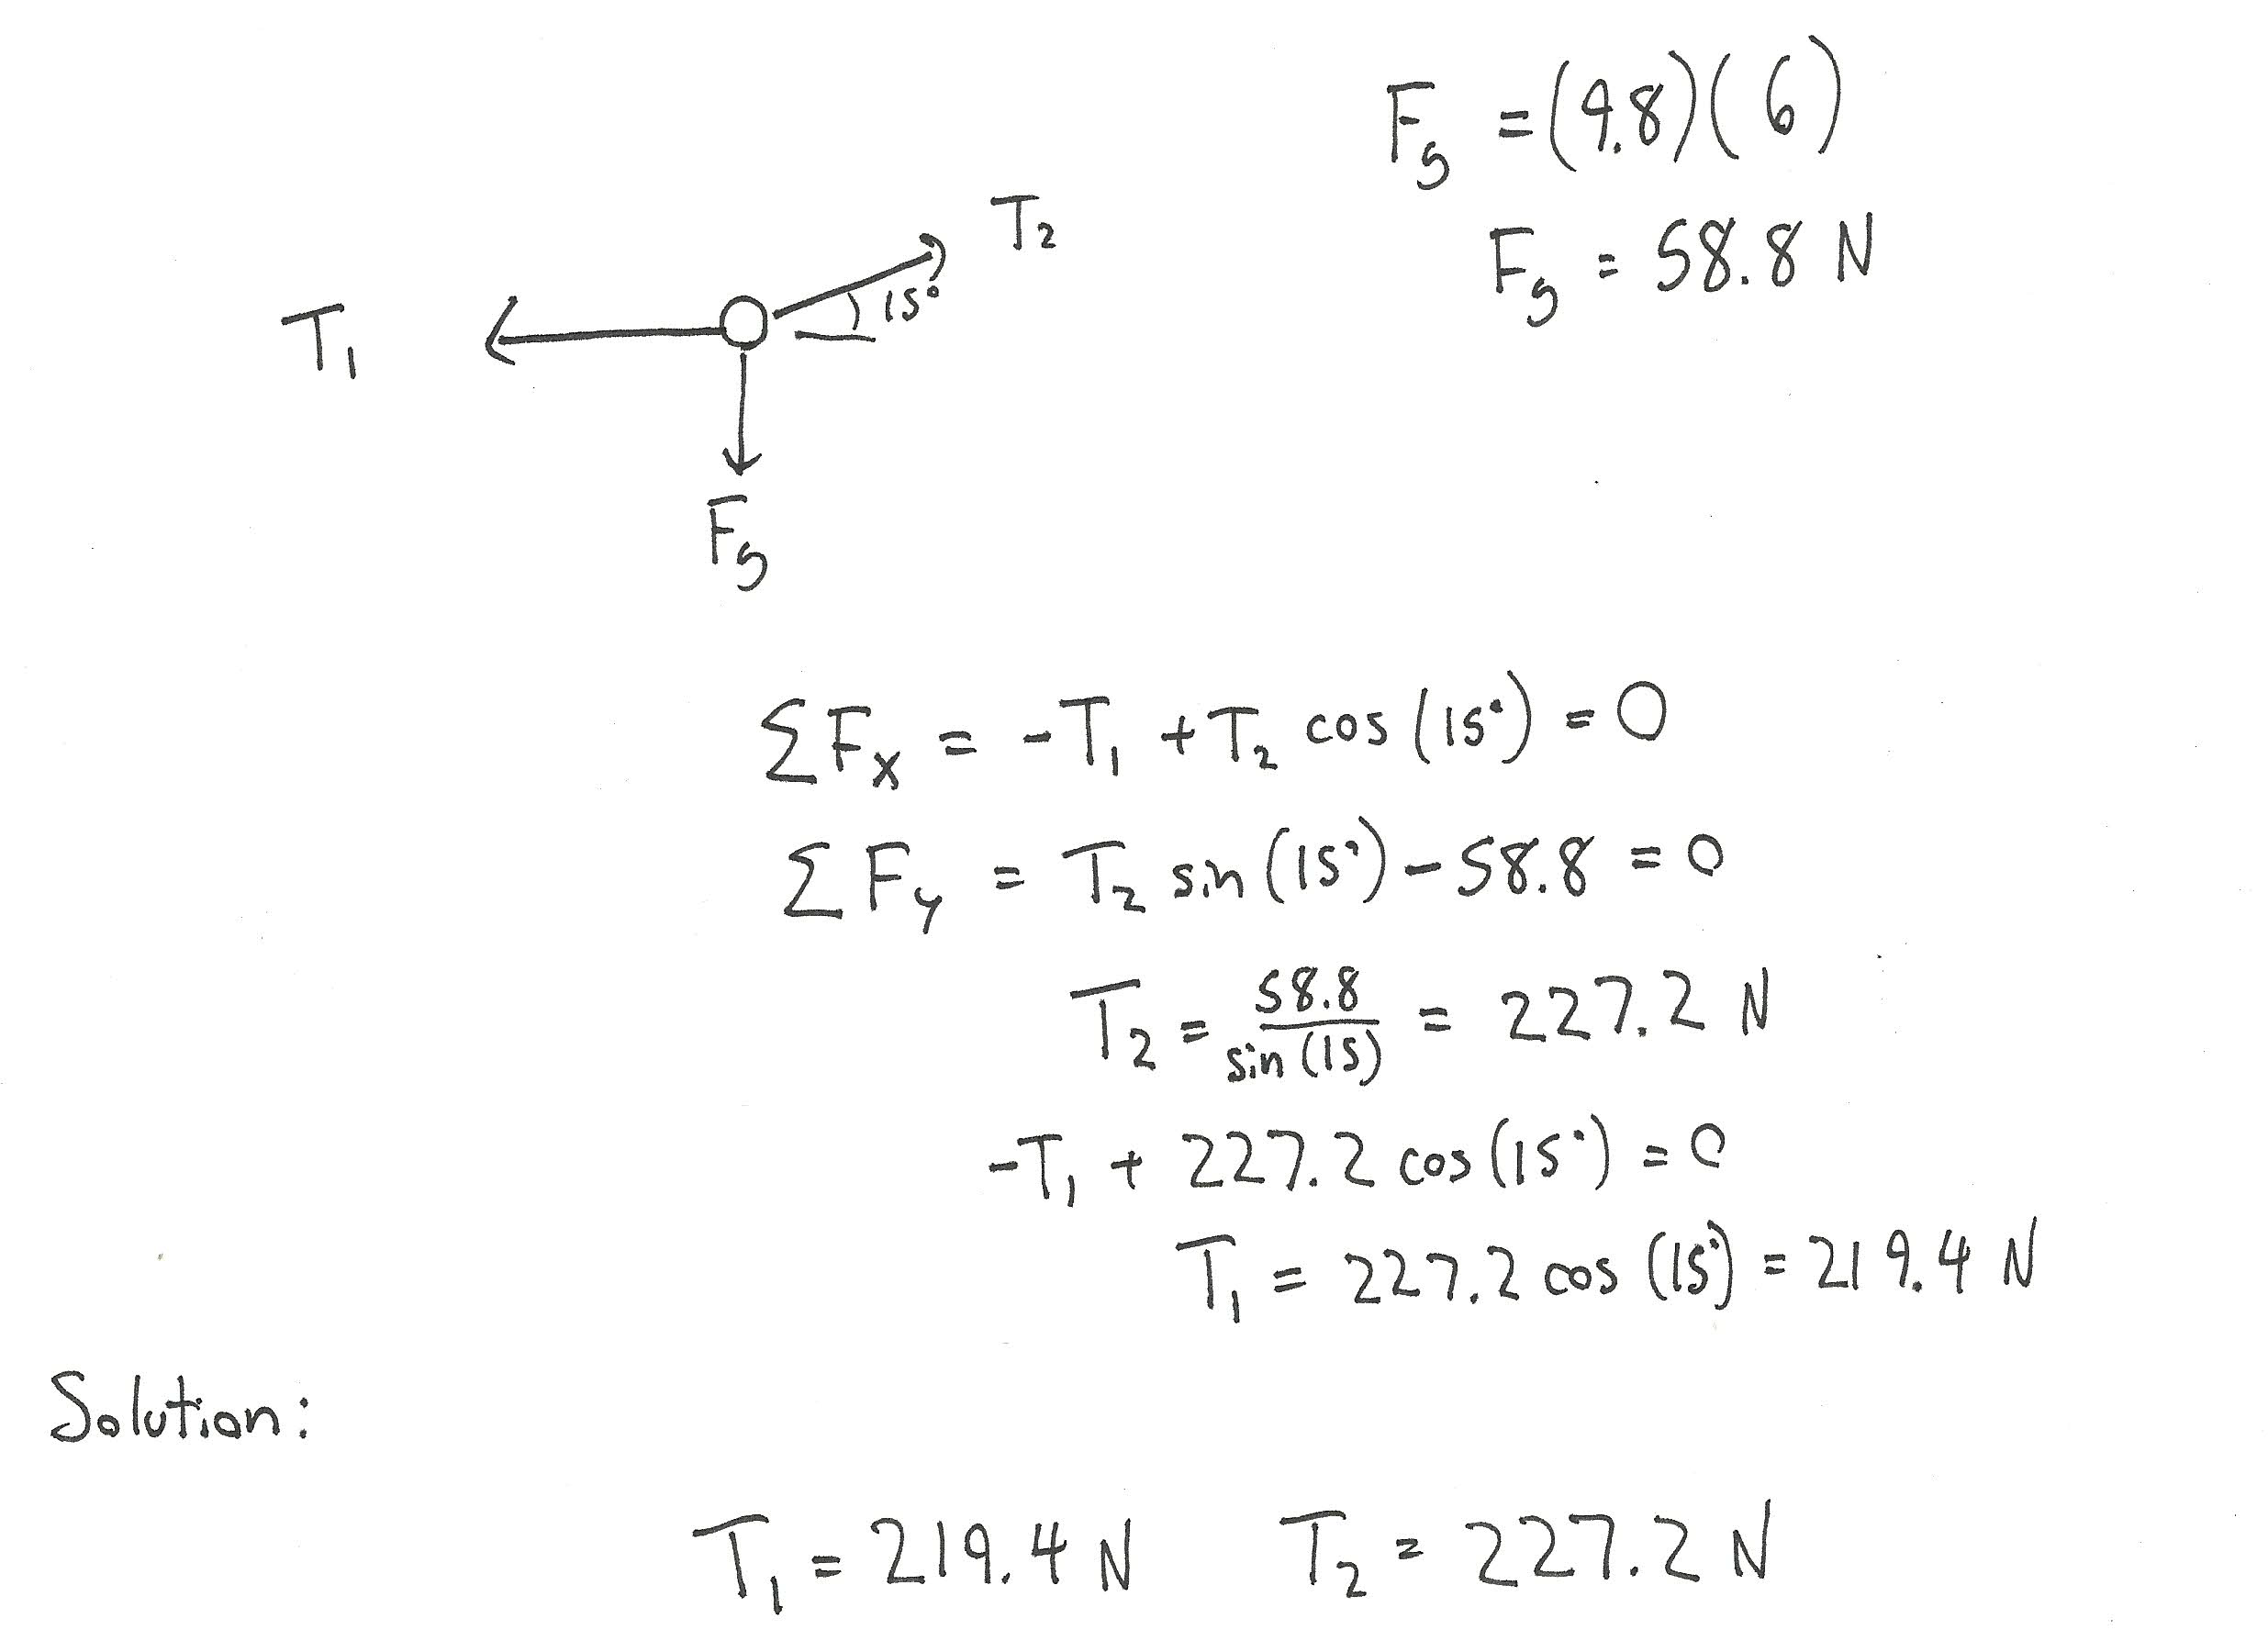 F_g = (9.8)(6)
F_g = 58.8 N
T₂
15°
T₁
F_g
ΣFₓ = -T₁ + T₂ cos (15°) = 0
ΣF_y = T₂ sin (15°) - 58.8 = 0
T₂ = 58.8 / sin (15) = 227.2 N
-T₁ + 227.2 cos (15°) = 0
T₁ = 227.2 cos (15°) = 219.4 N
Solution:
T₁ = 219.4 N T₂ = 227.2 N